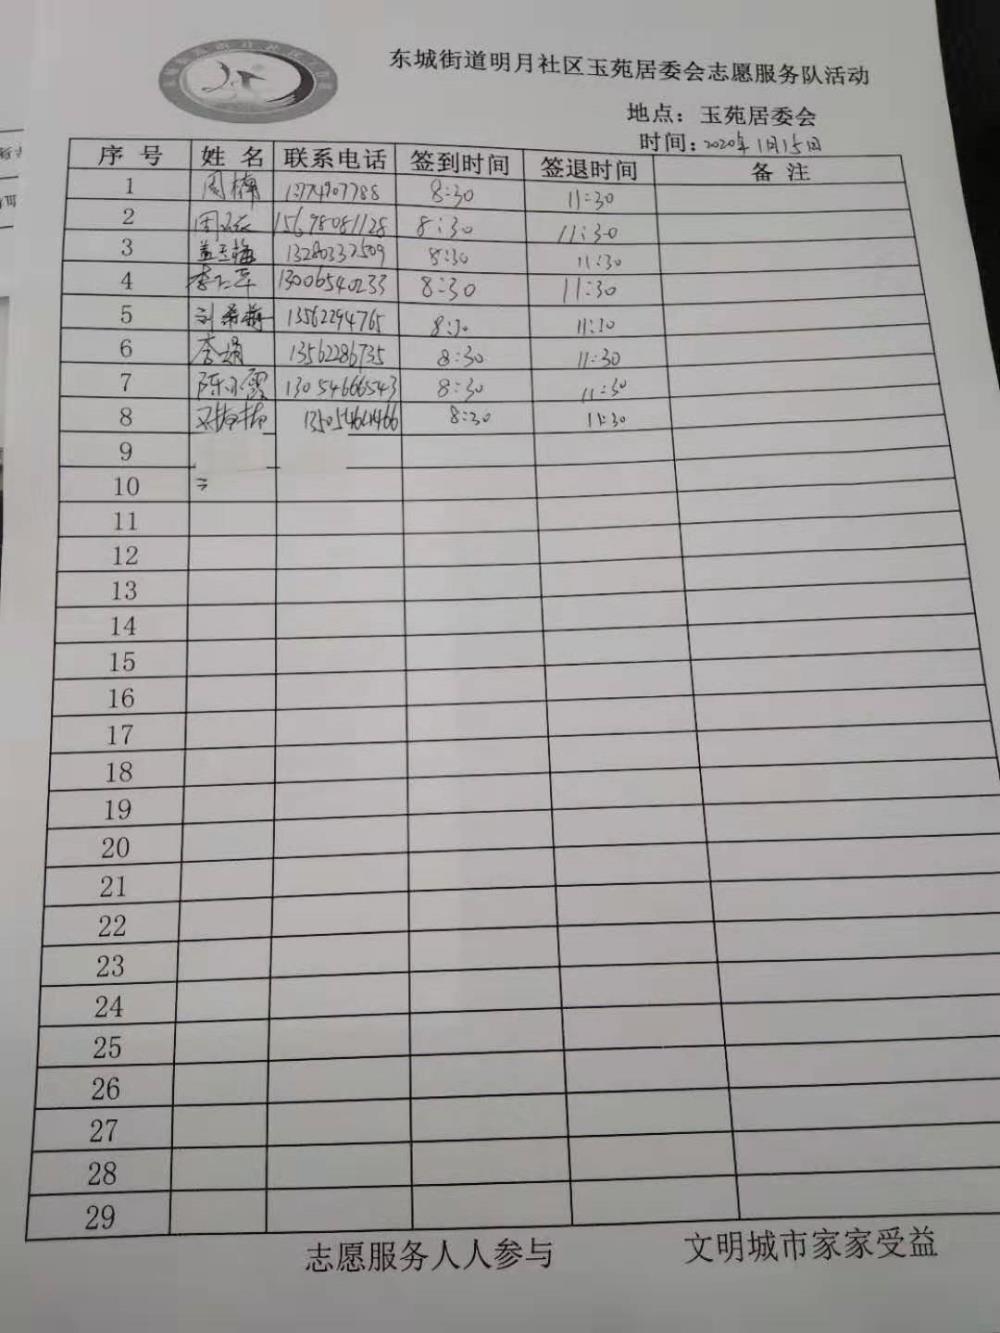 东城街道明月社区玉苑居委会志愿服务队活动
地点：玉苑居委会
时间：2020年1月15日
序号 姓名 联系电话 签到时间 签退时间 备注
1 周楠 13774907788 8:30 11:30
2 15698081128 8:30 11:30
3 盖玉梅 13280332509 8:30 11:30
4 13006540233 8:30 11:30
5 13562294765 8:30 11:30
6 李娟 13562286735 8:30 11:30
7 13054666543 8:30 11:30
8 8:30 11:30
9
10
11
12
13
14
15
16
17
18
19
20
21
22
23
24
25
26
27
28
29
志愿服务人人参与 文明城市家家受益